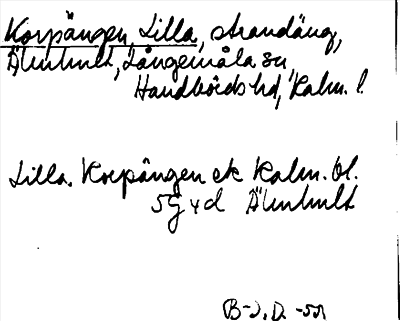 Korpängen, Lilla, strandäng,
Älmhult, Långemåla sn
Handbörds hd, Kalm. l.
Lilla Korpängen ek Kalm. bl.
5G 4d Älmhult